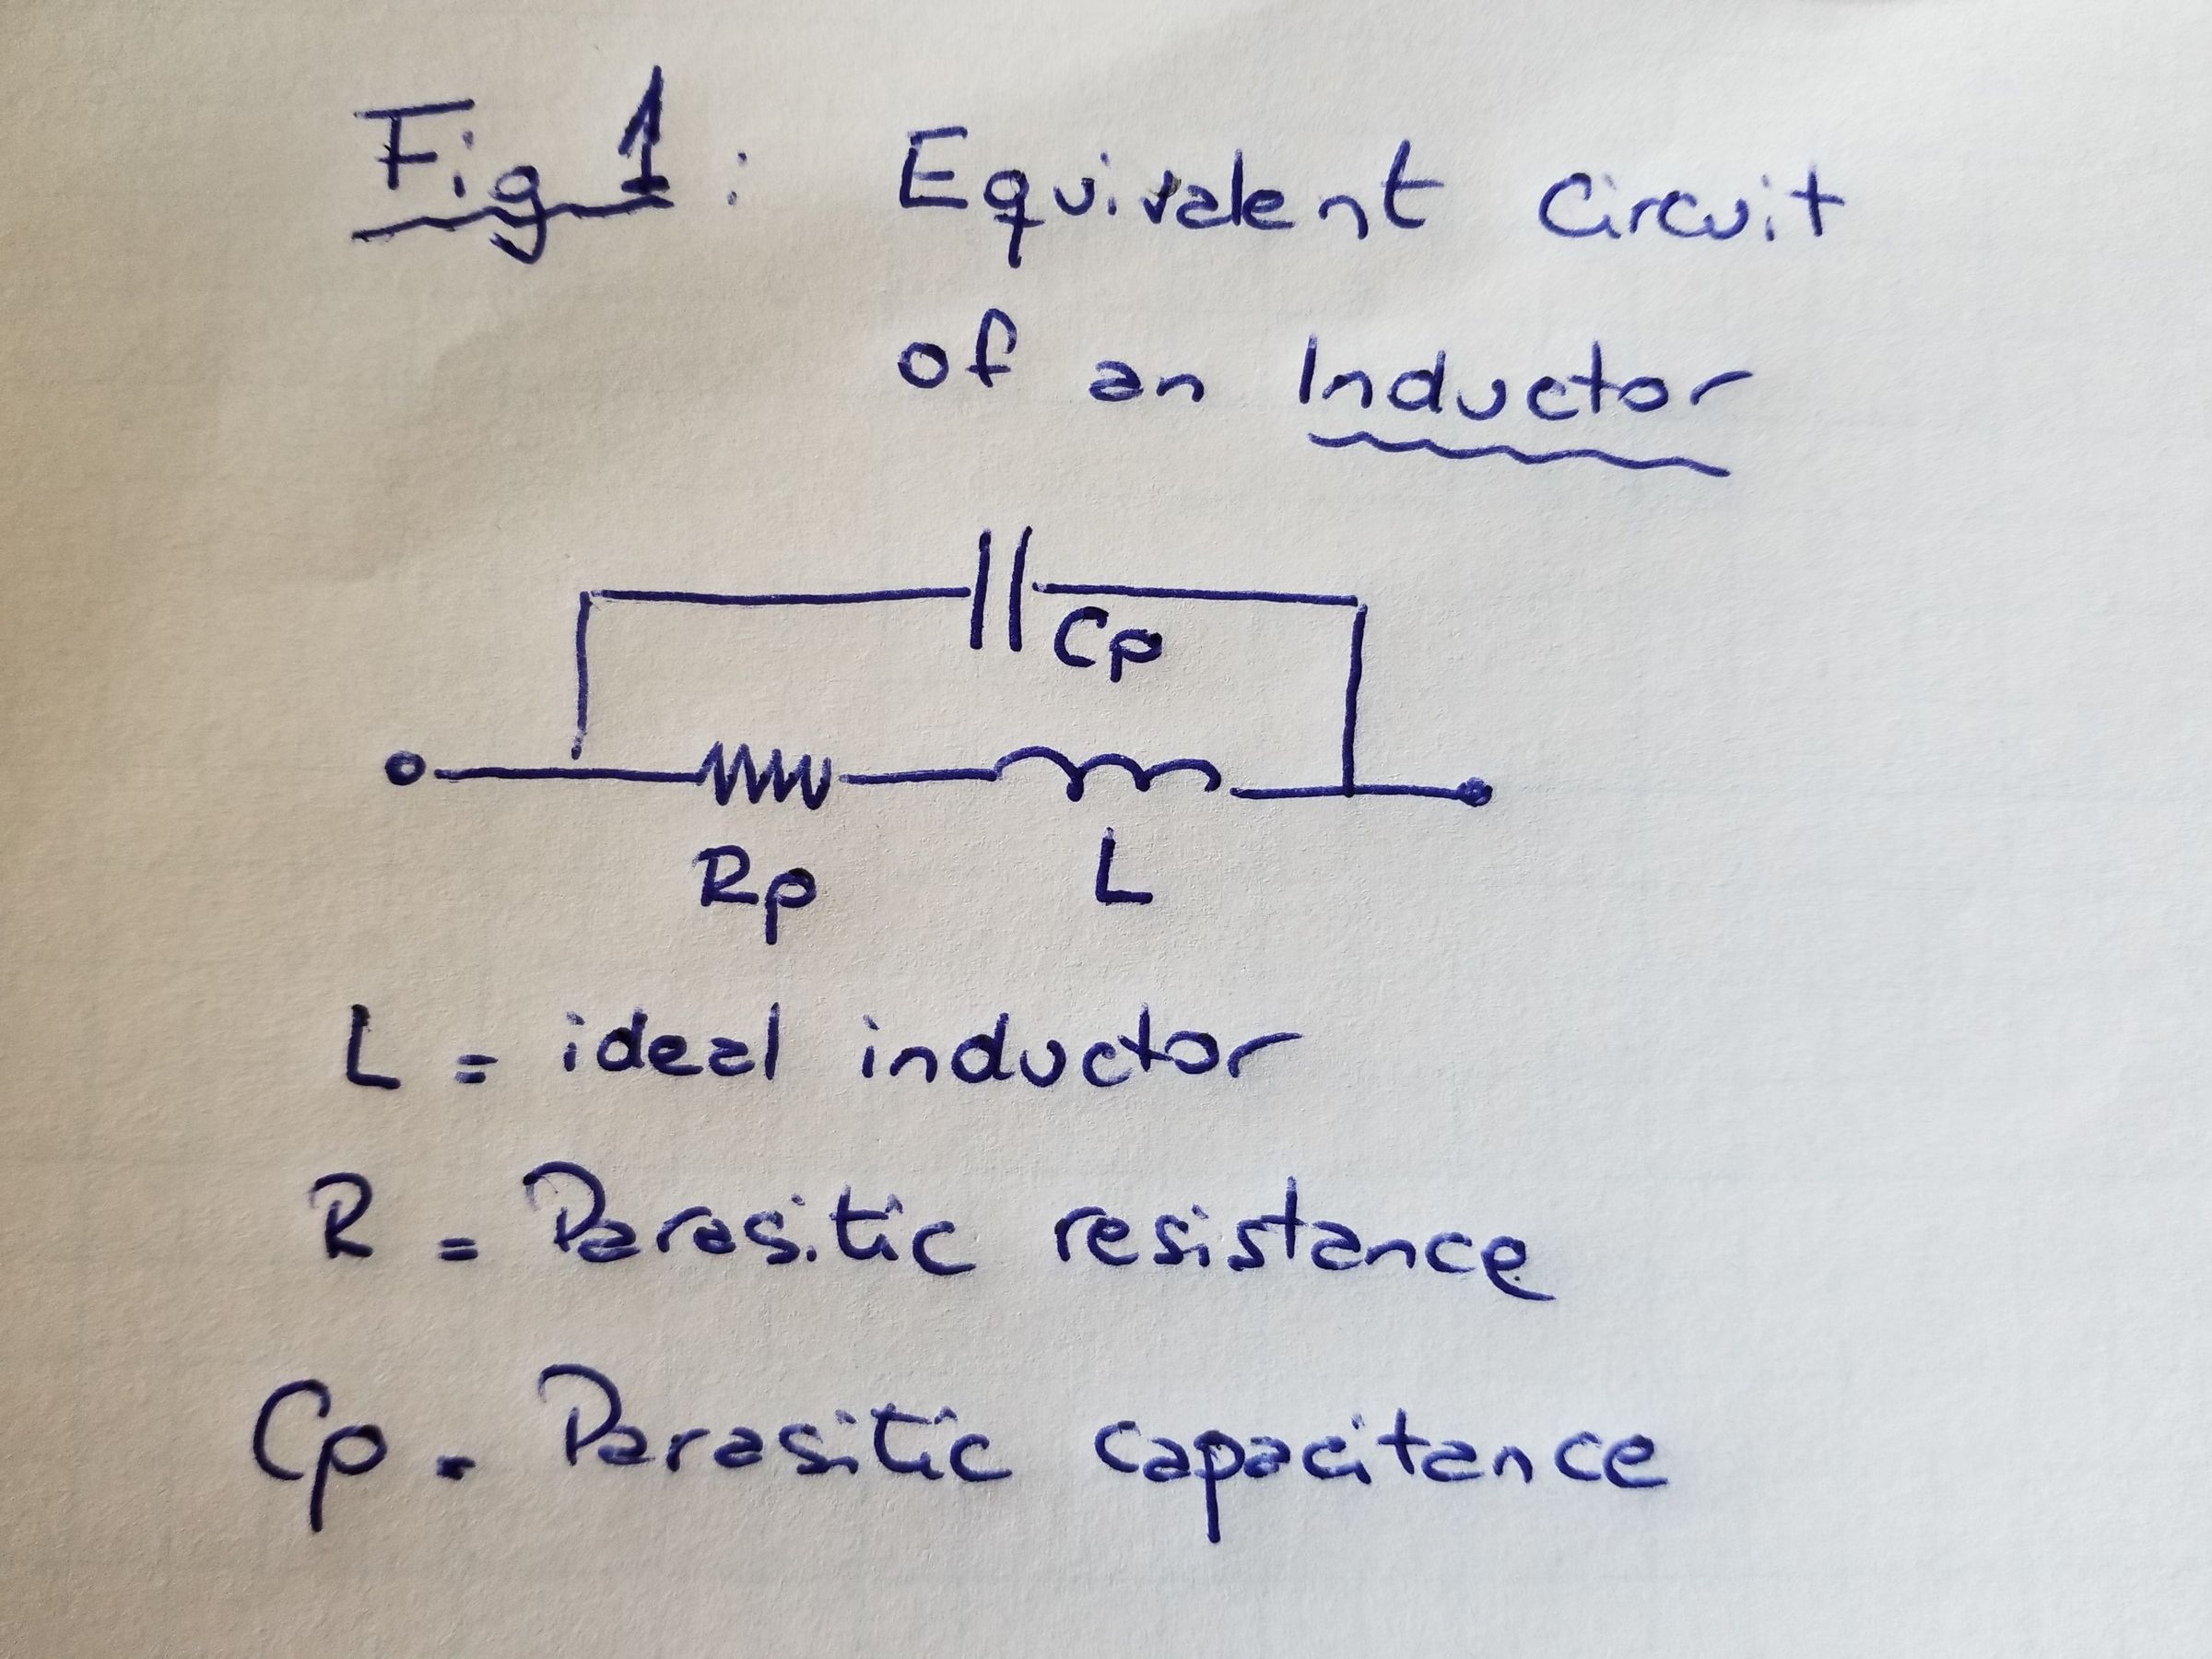 Fig 1: Equivalent Circuit
of an Inductor
Cp
Rp L
L = ideal inductor
R = Parasitic resistance
Cp = Parasitic capacitance